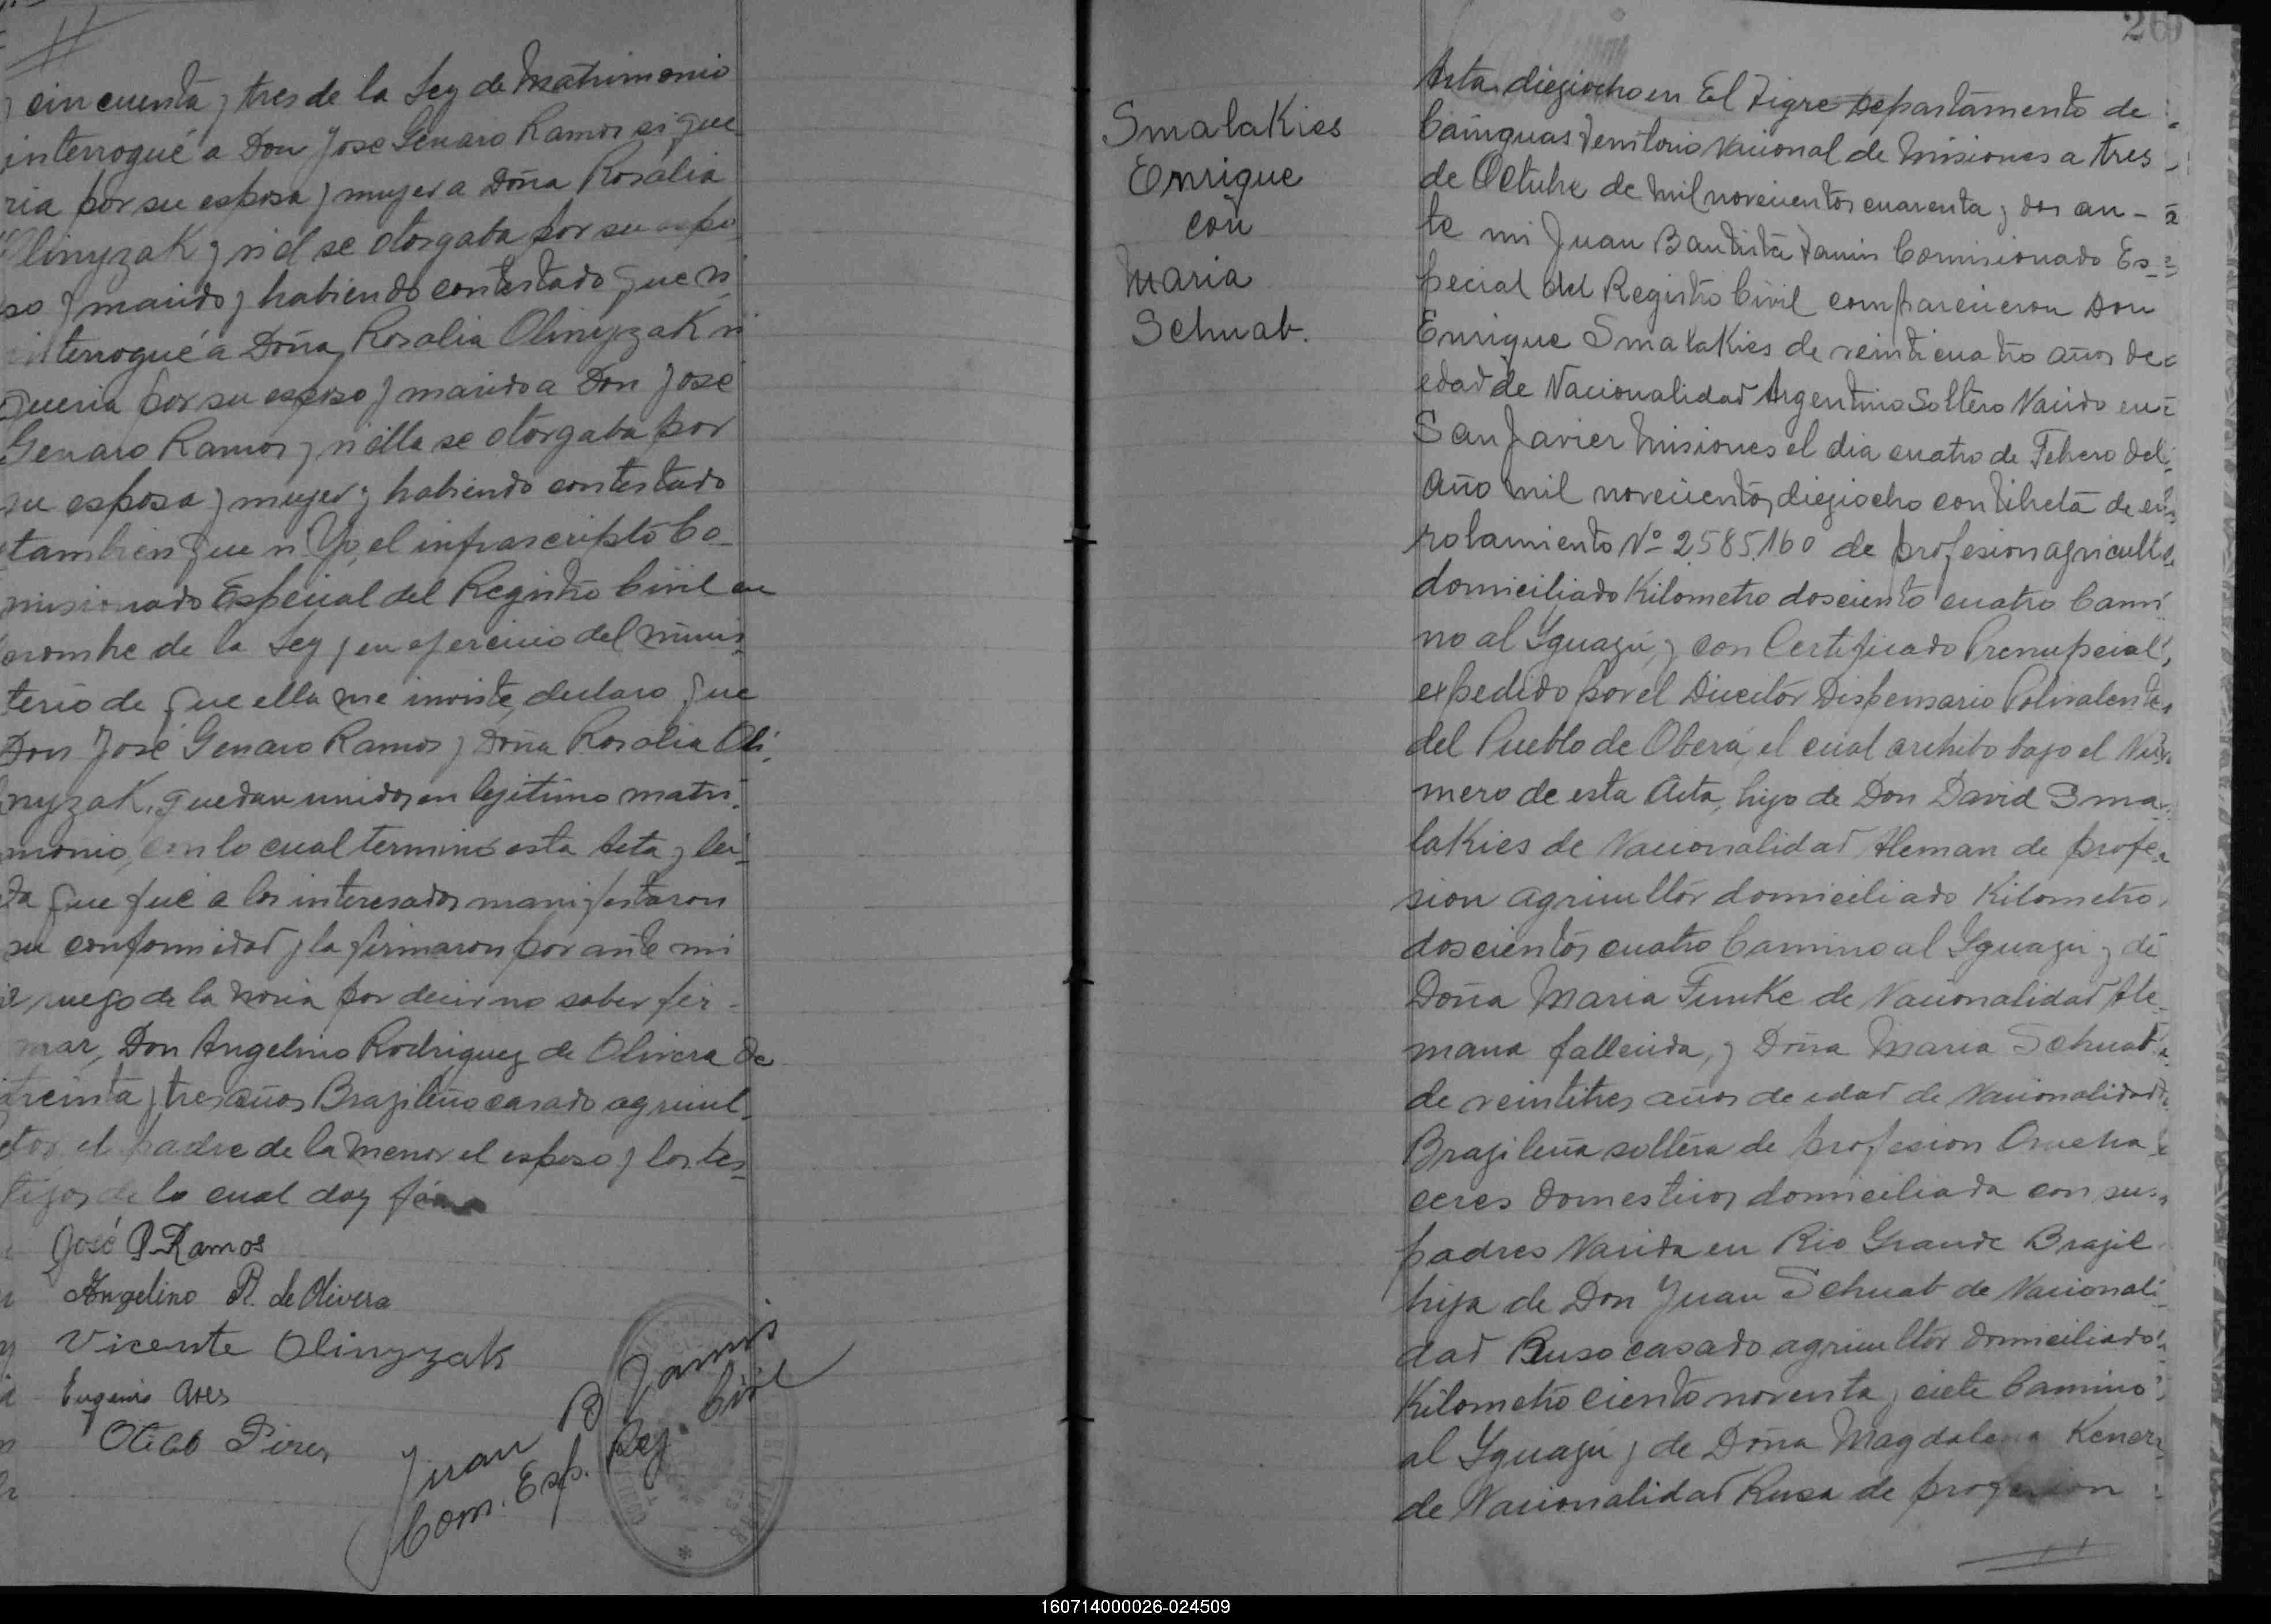 cincuenta y tres de la Ley de Matrimonio
interrogué a Don Jose Genaro Ramos si que
ria por su esposa y mujer a Doña Rosalia
Olinyzak y si el se otorgaba por su espo
so y marido y habiendo contestado que si
interrogué a Doña Rosalia Olinyzak si
queria por su esposo y marido a Don Jose
Genaro Ramos y si ella se otorgaba por
su esposa y mujer y habiendo contestado
tambien que si Yo, el infrascripto Co-
misionado Especial del Registro Civil en
nombre de la Ley y en ejercicio del minis-
terio de que ella me inviste, declaro que
Don José Genaro Ramos y Doña Rosalia Oli-
nyzak, quedan unidos en legitimo matri-
monio, con lo cual terminó esta Acta y lei-
da que fué a los interesados manifestaron
su conformidad y la firmaron por ante mi
a ruego de la novia por decir no saber fir-
mar, Don Angelino Rodriguez de Olivera de
treinta y tres años Brazileño casado agricul-
tor, el padre de la menor el esposo y los tes-
tigos de lo cual doy fé
José P. Ramos
Angelino R. de Olivera
Vicente Olinyzak
Eugenio
Pires
Juan B Janis
Com. Esp. Reg. Civil
26
Smalakies
Enrique
con
Maria
Schuab.
Acta diegiocho en El Tigre Departamento de
Cainguas Territorio Nacional de Misiones a tres
de Octubre de mil novecientos cuarenta y dos an-
te mi Juan Bautista Janis Comisionado Es-
pecial del Registro Civil comparecieron Don
Enrique Smalakies de veinticuatro años de
edad de Nacionalidad Argentino Soltero Nacido en
San Javier Misiones el dia cuatro de Febrero del
año mil novecientos diegiocho con libreta de en
rolamiento Nº 2.585.160 de profesion agricultor
domiciliado Kilometro dosciento cuatro Cami
no al Yguazú, y con Certificado Prenupcial,
expedido por el Director Dispensario Polivalente
del Pueblo de Oberá, el cual archibo bajo el Nú
mero de esta Acta, hijo de Don David Sma-
lakies de Nacionalidad Aleman de profe-
sion agricultor domiciliado Kilometro
doscientos cuatro Camino al Yguazú y de
Doña Maria Funke de Nacionalidad Ale-
mana fallecida, y Doña Maria Schuab
de veintitres años de edad de Nacionalidad
Brazileña soltera de profesion Queha
ceres Domesticos domiciliada con sus
padres Nacida en Rio Grande Brazil
hija de Don Juan Schuab de Nacionali-
dad Ruso casado agricultor domiciliado
Kilometro ciento noventa y siete Camino
al Yguazú y de Doña Magdalena
de Nacionalidad Rusa de profesion
160714000026-024509